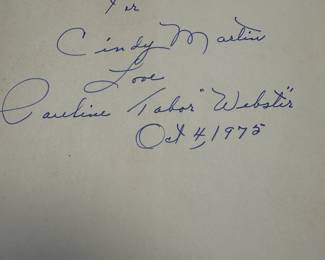 For
Cindy Martin
Love
Pauline Tabor "Webster"
Oct 4, 1975